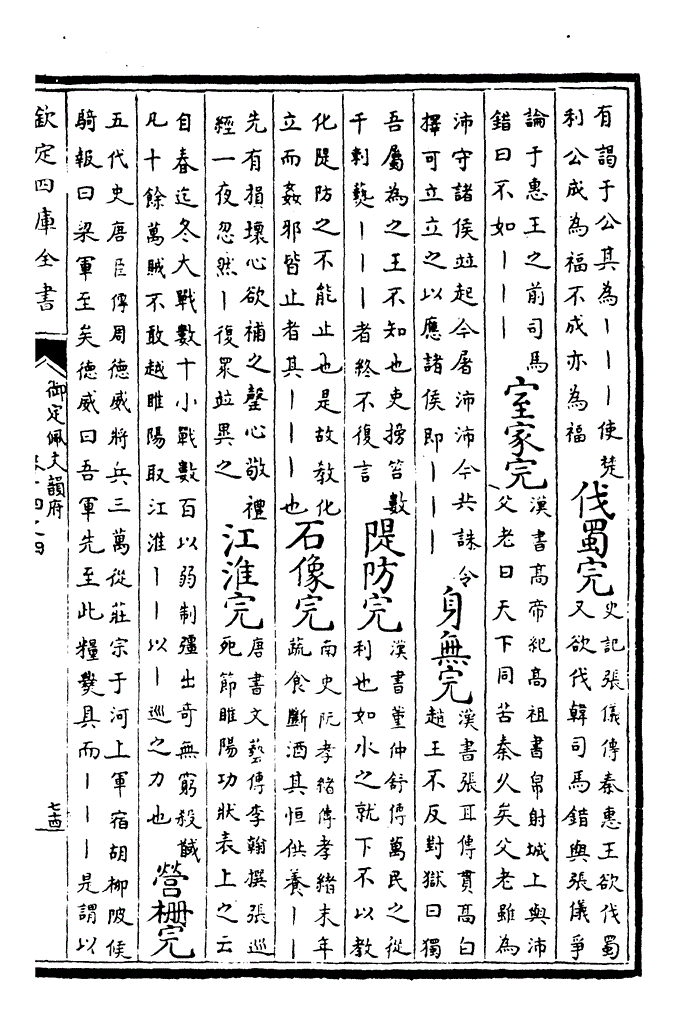 有謁于公其為｜｜｜使楚
利公成為福不成亦為福
伐蜀完
史記張儀傳秦惠王欲伐蜀
又欲伐韓司馬錯與張儀爭
論于惠王之前司馬
錯曰不如｜｜｜
室家完
漢書高帝紀高祖書帛射城上與沛
父老曰天下同苦秦久矣父老雖為
沛守諸侯竝起今屠沛沛今共誅令
擇可立立之以應諸侯即｜｜｜
身無完
漢書張耳傳貫高白
趙王不反對獄曰獨
吾屬為之王不知也吏搒笞數
千刺爇｜｜｜者終不復言
隄防完
漢書董仲舒傳萬民之從
利也如水之就下不以教
化隄防之不能止也是故教化
立而姦邪皆止者其｜｜｜也
石像完
南史阮孝緒傳孝緒末年
蔬食斷酒其恒供養｜｜
先有損壞心欲補之罄心敬禮
經一夜忽然｜復眾竝異之
江淮完
唐書文藝傳李翰撰張巡
死節睢陽功狀表上之云
自春迄冬大戰數十小戰數百以弱制彊出奇無窮殺馘
凡十餘萬賊不敢越睢陽取江淮｜｜以｜巡之力也
營柵完
五代史唐臣傳周德威將兵三萬從莊宗于河上軍宿胡柳陂候
騎報曰梁軍至矣德威曰吾軍先至此糧爨具而｜｜｜是謂以
欽定四庫全書
御定佩文韻府
卷十四之四
七十四